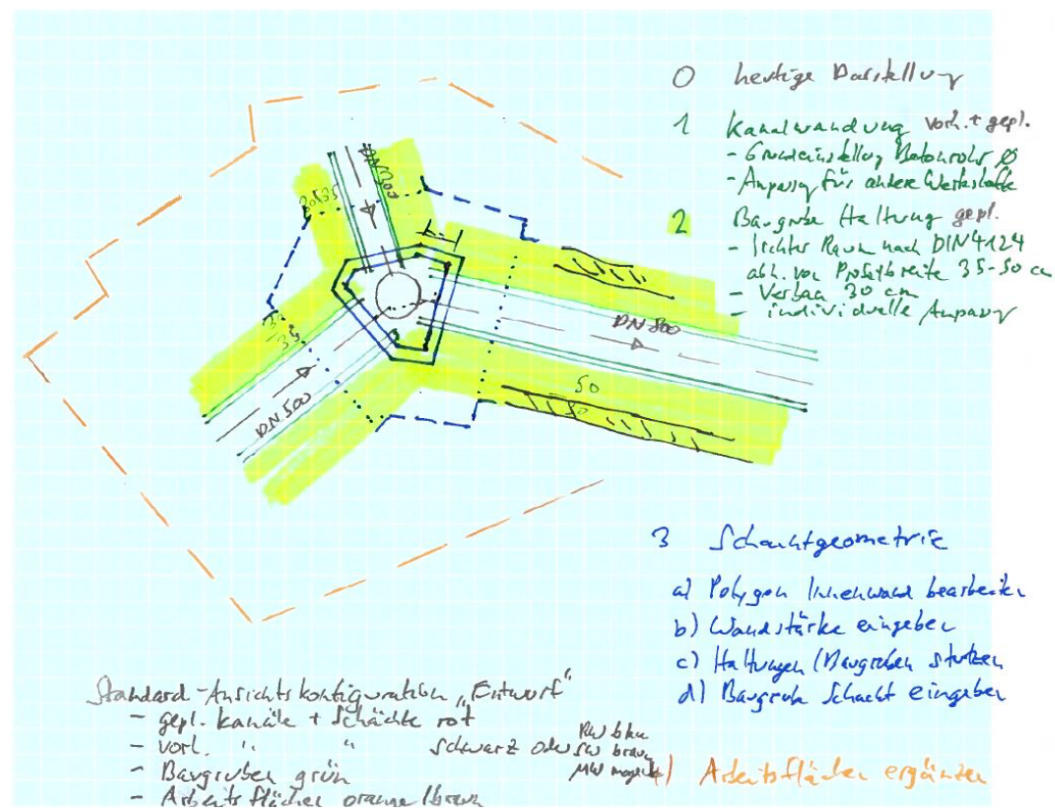 0 heutige Darstellung
1 Kanalwandung vorh. + gepl.
- Grundeinstellung Betonrohr Ø
- Anpassg für andere Werkstoffe
2 Baugrube Haltung gepl.
- lichter Raum nach DIN 4124
abh. von Profilbreite 35-50 cm
- Verbau 30 cm
- individuelle Anpassg
20+35
DN 300
DN 800
50
30
DN 500
3 Schachtgeometrie
a) Polygon Innenwand bearbeiten
b) Wandstärke eingeben
c) Haltungen/Baugruben stutzen
d) Baugrube Schacht eingeben
Standard-Ansichtskonfiguration „Entwurf"
- gepl. Kanäle + Schächte rot
- vorh. " " schwarz oder RW blau
SW braun
MW magenta
- Baugruben grün
- Arbeitsflächen orange/braun
) Arbeitsflächen ergänzen